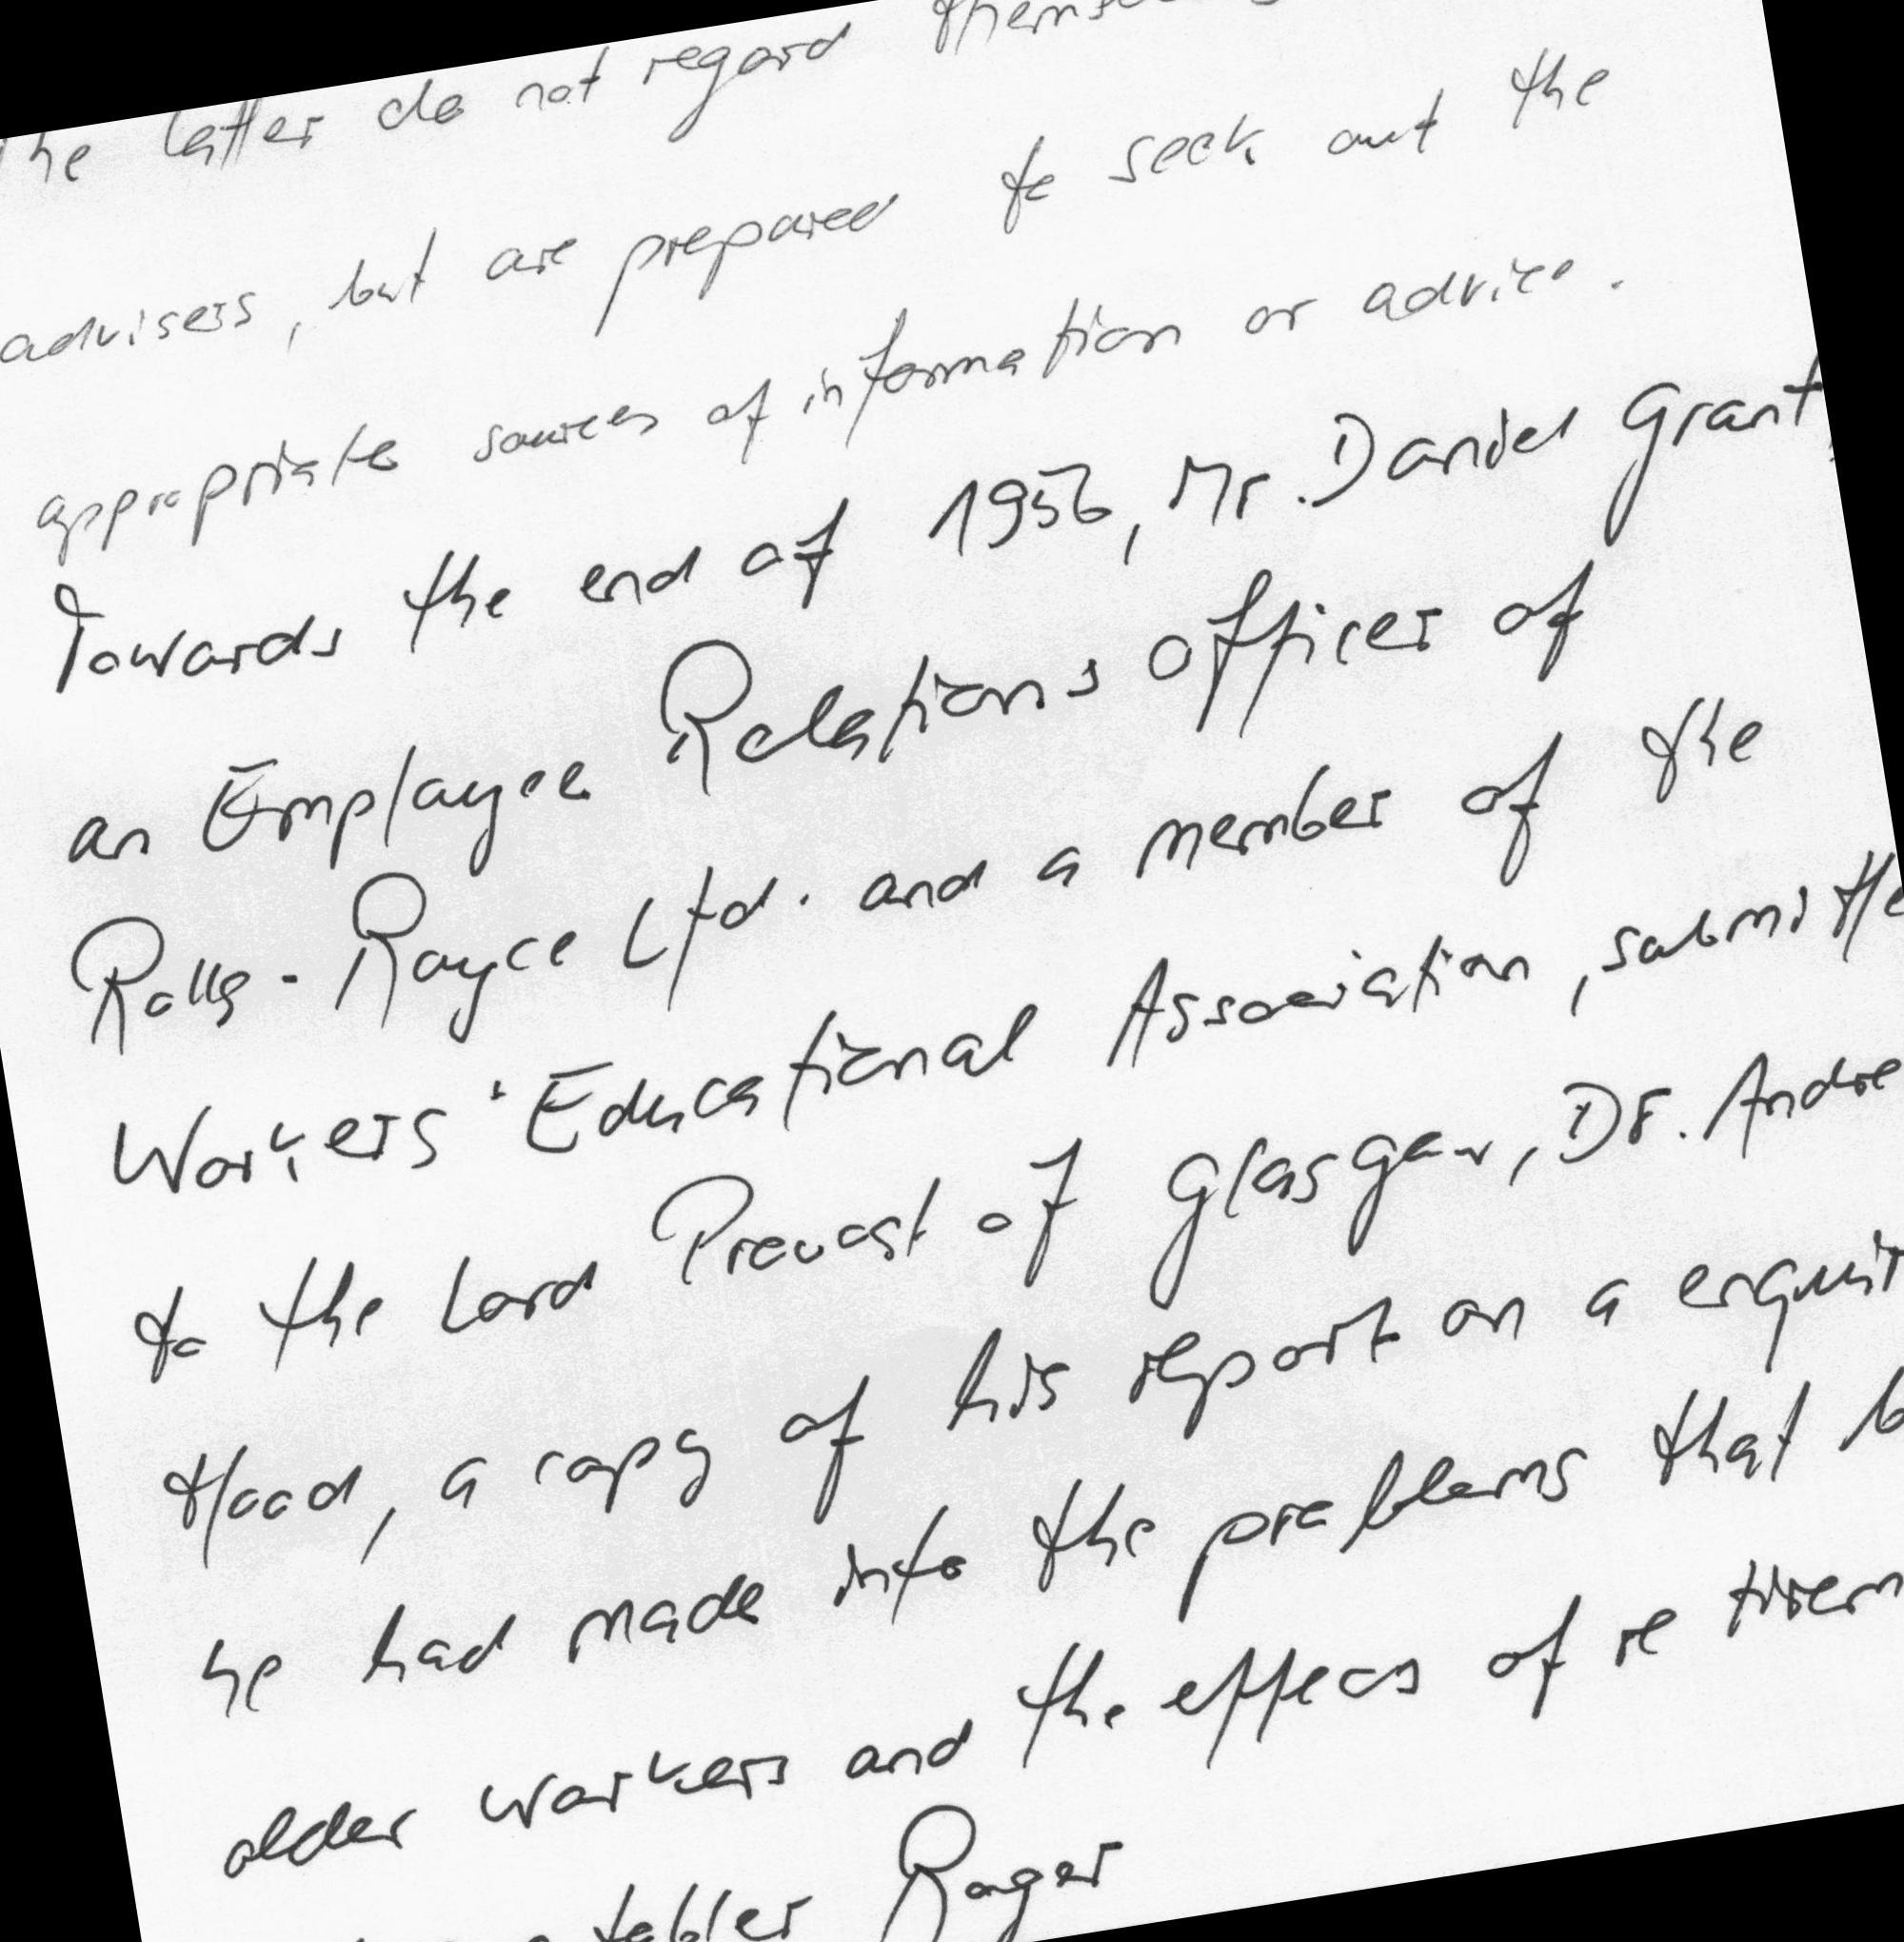 he latter do not regard
advisers, but are prepared to seek out the
appropriate sources of information or advice.
Towards the end of 1956, Mr. Daniel Grant,
an Employee Relations Officer of
Rolls-Royce Ltd. and a member of the
Workers' Educational Association, submitte
to the Lord Provost of Glasgow, Dr. Andre
Hood, a copy of his report on a enquir
he had made into the problems that b
older workers and the effecs of retirem
Roger